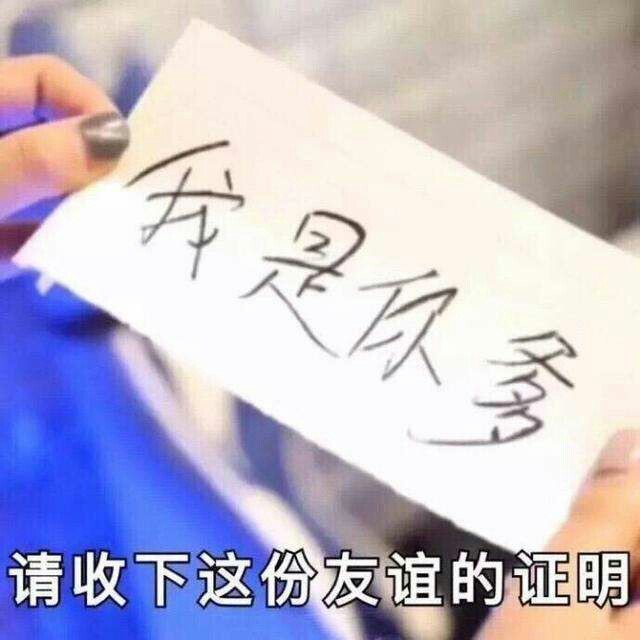 我是你爹
请收下这份友谊的证明